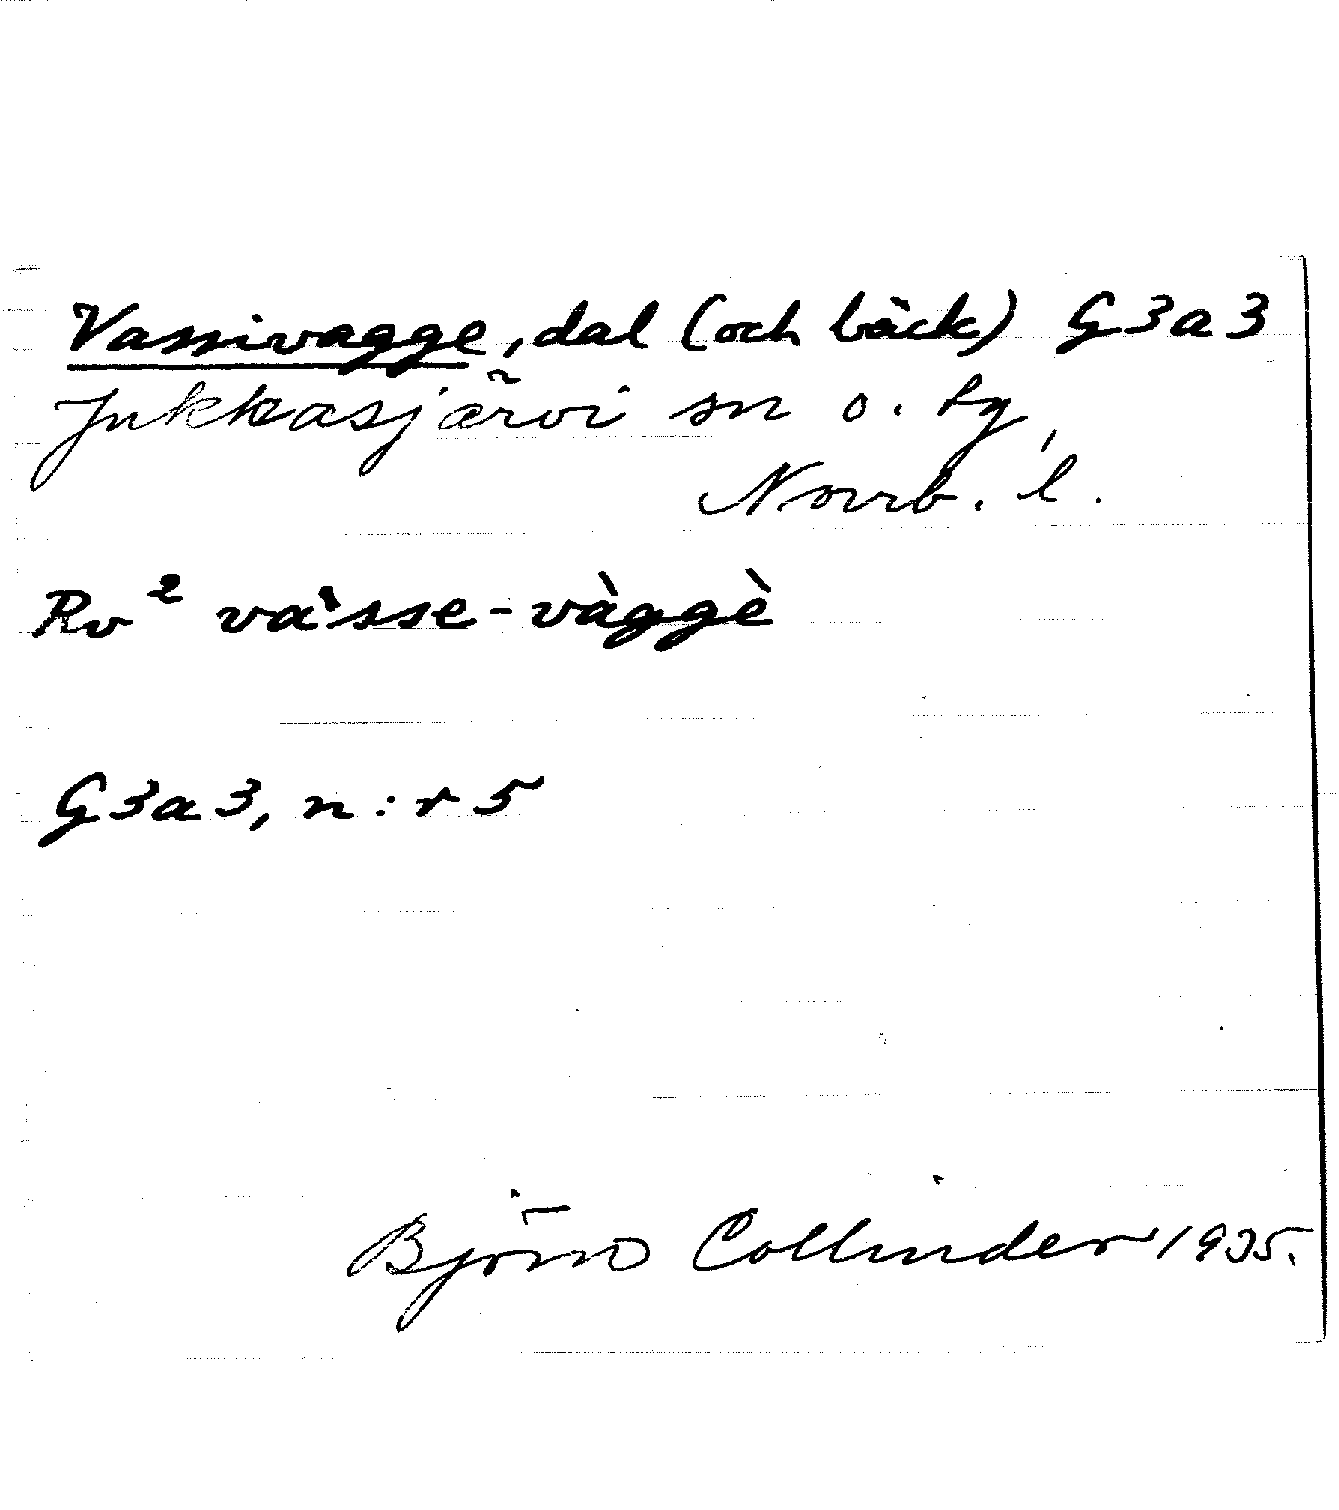 Vassivagge, dal (och bäck) G3a3
Jukkasjärvi sn o. tg,
Norrb. l.
Rv² vaˋsse-vàggè
G3a3, n:r 5
Björn Collinder 1935.